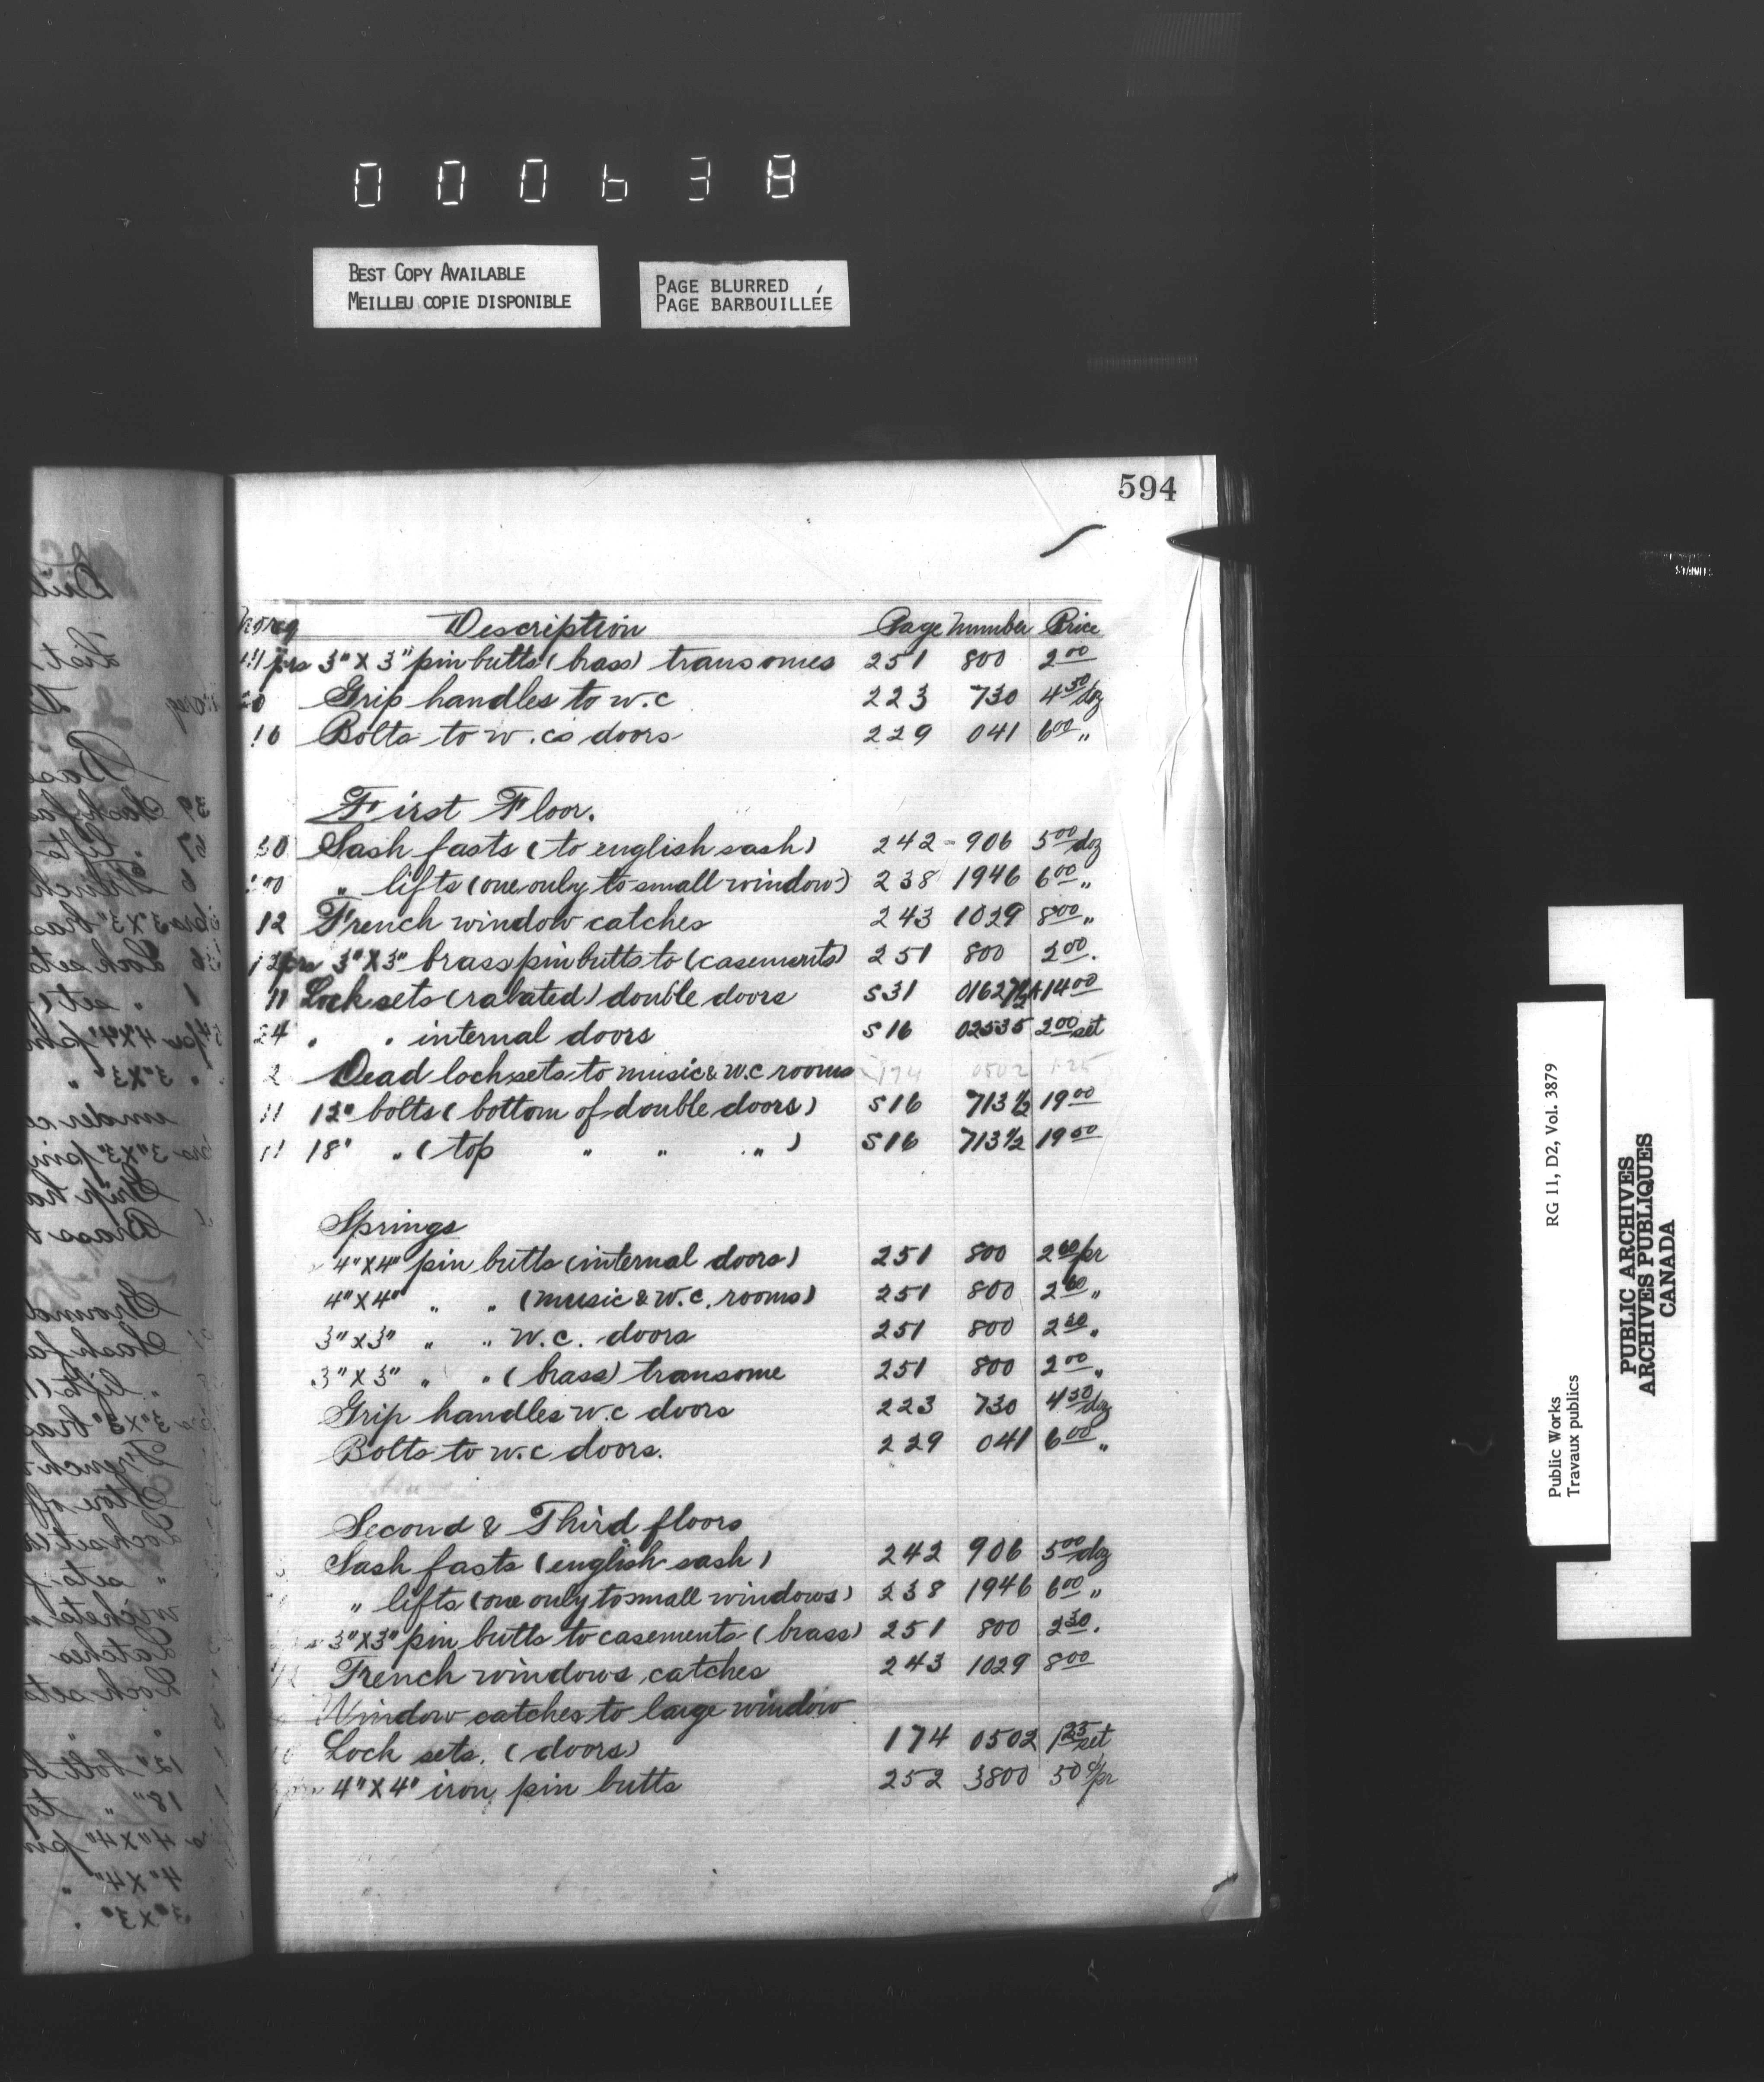 000638
BEST COPY AVAILABLE
MEILLEU COPIE DISPONIBLE
PAGE BLURRED
PAGE BARBOUILLÉE
594
No req Description Page Number Price
prs 3" X 3" pin butts (brass) transomes 251 800 2 00
Grip handles to w.c 223 730 4 50/doz
16 Bolts to w.cs doors 229 041 6 00 "
First Floor.
30 Sash fasts (to english sash) 242 - 906 5 00/doz
" lifts (one only to small window) 238 1946 6 00 "
12 French window catches 243 1029 8 00 "
12 prs 3" X 3" brass pin butts to (casements) 251 800 2 00.
11 Lock sets (rabated) double doors S31 01627 1/2 14 00
24 " " internal doors S16 02535 2 00 set
2 Dead lock sets to music & w.c rooms 174 0502 1.25
11 12" bolts (bottom of double doors) S16 713 1/2 19 00
11 18" " (top " " ") S16 713 1/2 19 50
Springs
4" X 4" pin butts (internal doors) 251 800 2 60/pr
4" X 4" " " (music & w.c. rooms) 251 800 2 60 "
3" X 3" " " W.C. doors 251 800 2 30 "
3" X 3" " " (brass) transome 251 800 2 00 "
Grip handles w.c doors 223 730 4 50/doz
Bolts to w.c doors. 229 041 6 00 "
Second & Third floors
Sash fasts (english sash) 242 906 5 00/doz
" lifts (one only to small windows) 238 1946 6 00 "
3" X 3" pin butts to casements (brass) 251 800 2 30.
12 French windows catches 243 1029 8 00
Window catches to large window
Lock sets. (doors) 174 0502 1 25 set
4" X 4" iron pin butts 252 3800 50 ¢/pr
Public Works RG 11, D2, Vol. 3879
Travaux publics
PUBLIC ARCHIVES
ARCHIVES PUBLIQUES
CANADA